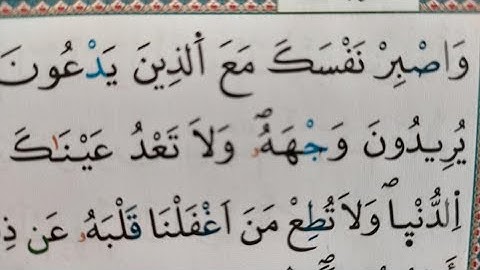 وَاصْبِرْ نَفْسَكَ مَعَ اَلذِينَ يَدْعُونَ
يُرِيدُونَ وَجْهَهُۥ وَلَا تَعْدُ عَيْنَاكَ
اِلدُّنْيٜاۖ وَلَا تُطِعْ مَنَ اَغْفَلْنَا قَلْبَهُۥ عَن ذِ